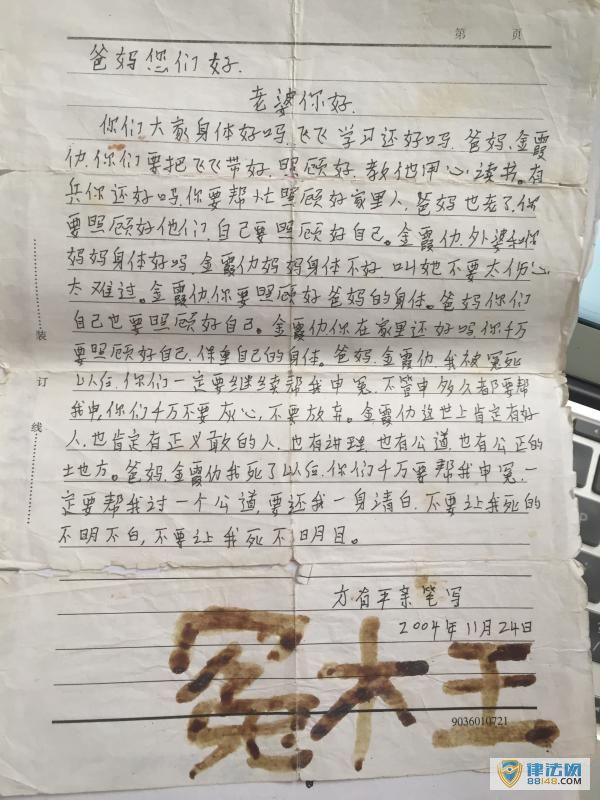 第 页
爸妈您们好.
老婆你好.
你们大家身体好吗,飞飞学习还好吗,爸妈、金霞
仂,你们要把飞飞带好,照顾好,教他用心读书。有
兵你还好吗,你要帮忙照顾好家里人,爸妈也老了,你
要照顾好他们,自己要照顾好自己。金霞仂,外婆和你
妈妈身体好吗,金霞仂妈妈身体不好 叫她不要太伤心
太难过。金霞仂,你要照顾好爸妈的身体。爸妈你们
自己也要照顾好自己。金霞仂你在家里还好吗,你千万
要照顾好自己,保重自己的身体。爸妈,金霞仂,我被冤死
以后,你们一定要继续帮我申冤,不管申多久都要帮
我申,你们千万不要灰心,不要放弃。金霞仂这世上肯定有好
人,也肯定有正义敢的人,也有讲理,也有公道,也有公正的
土地方。爸妈,金霞仂我死了以后,你们千万要帮我申冤,一
定要帮我讨一个公道,要还我一身清白,不要让我死的
不明不白,不要让我死不明目。
方有平亲笔写
2004年11月24日
冤枉
9036010721
装订线
律法网
88148.COM